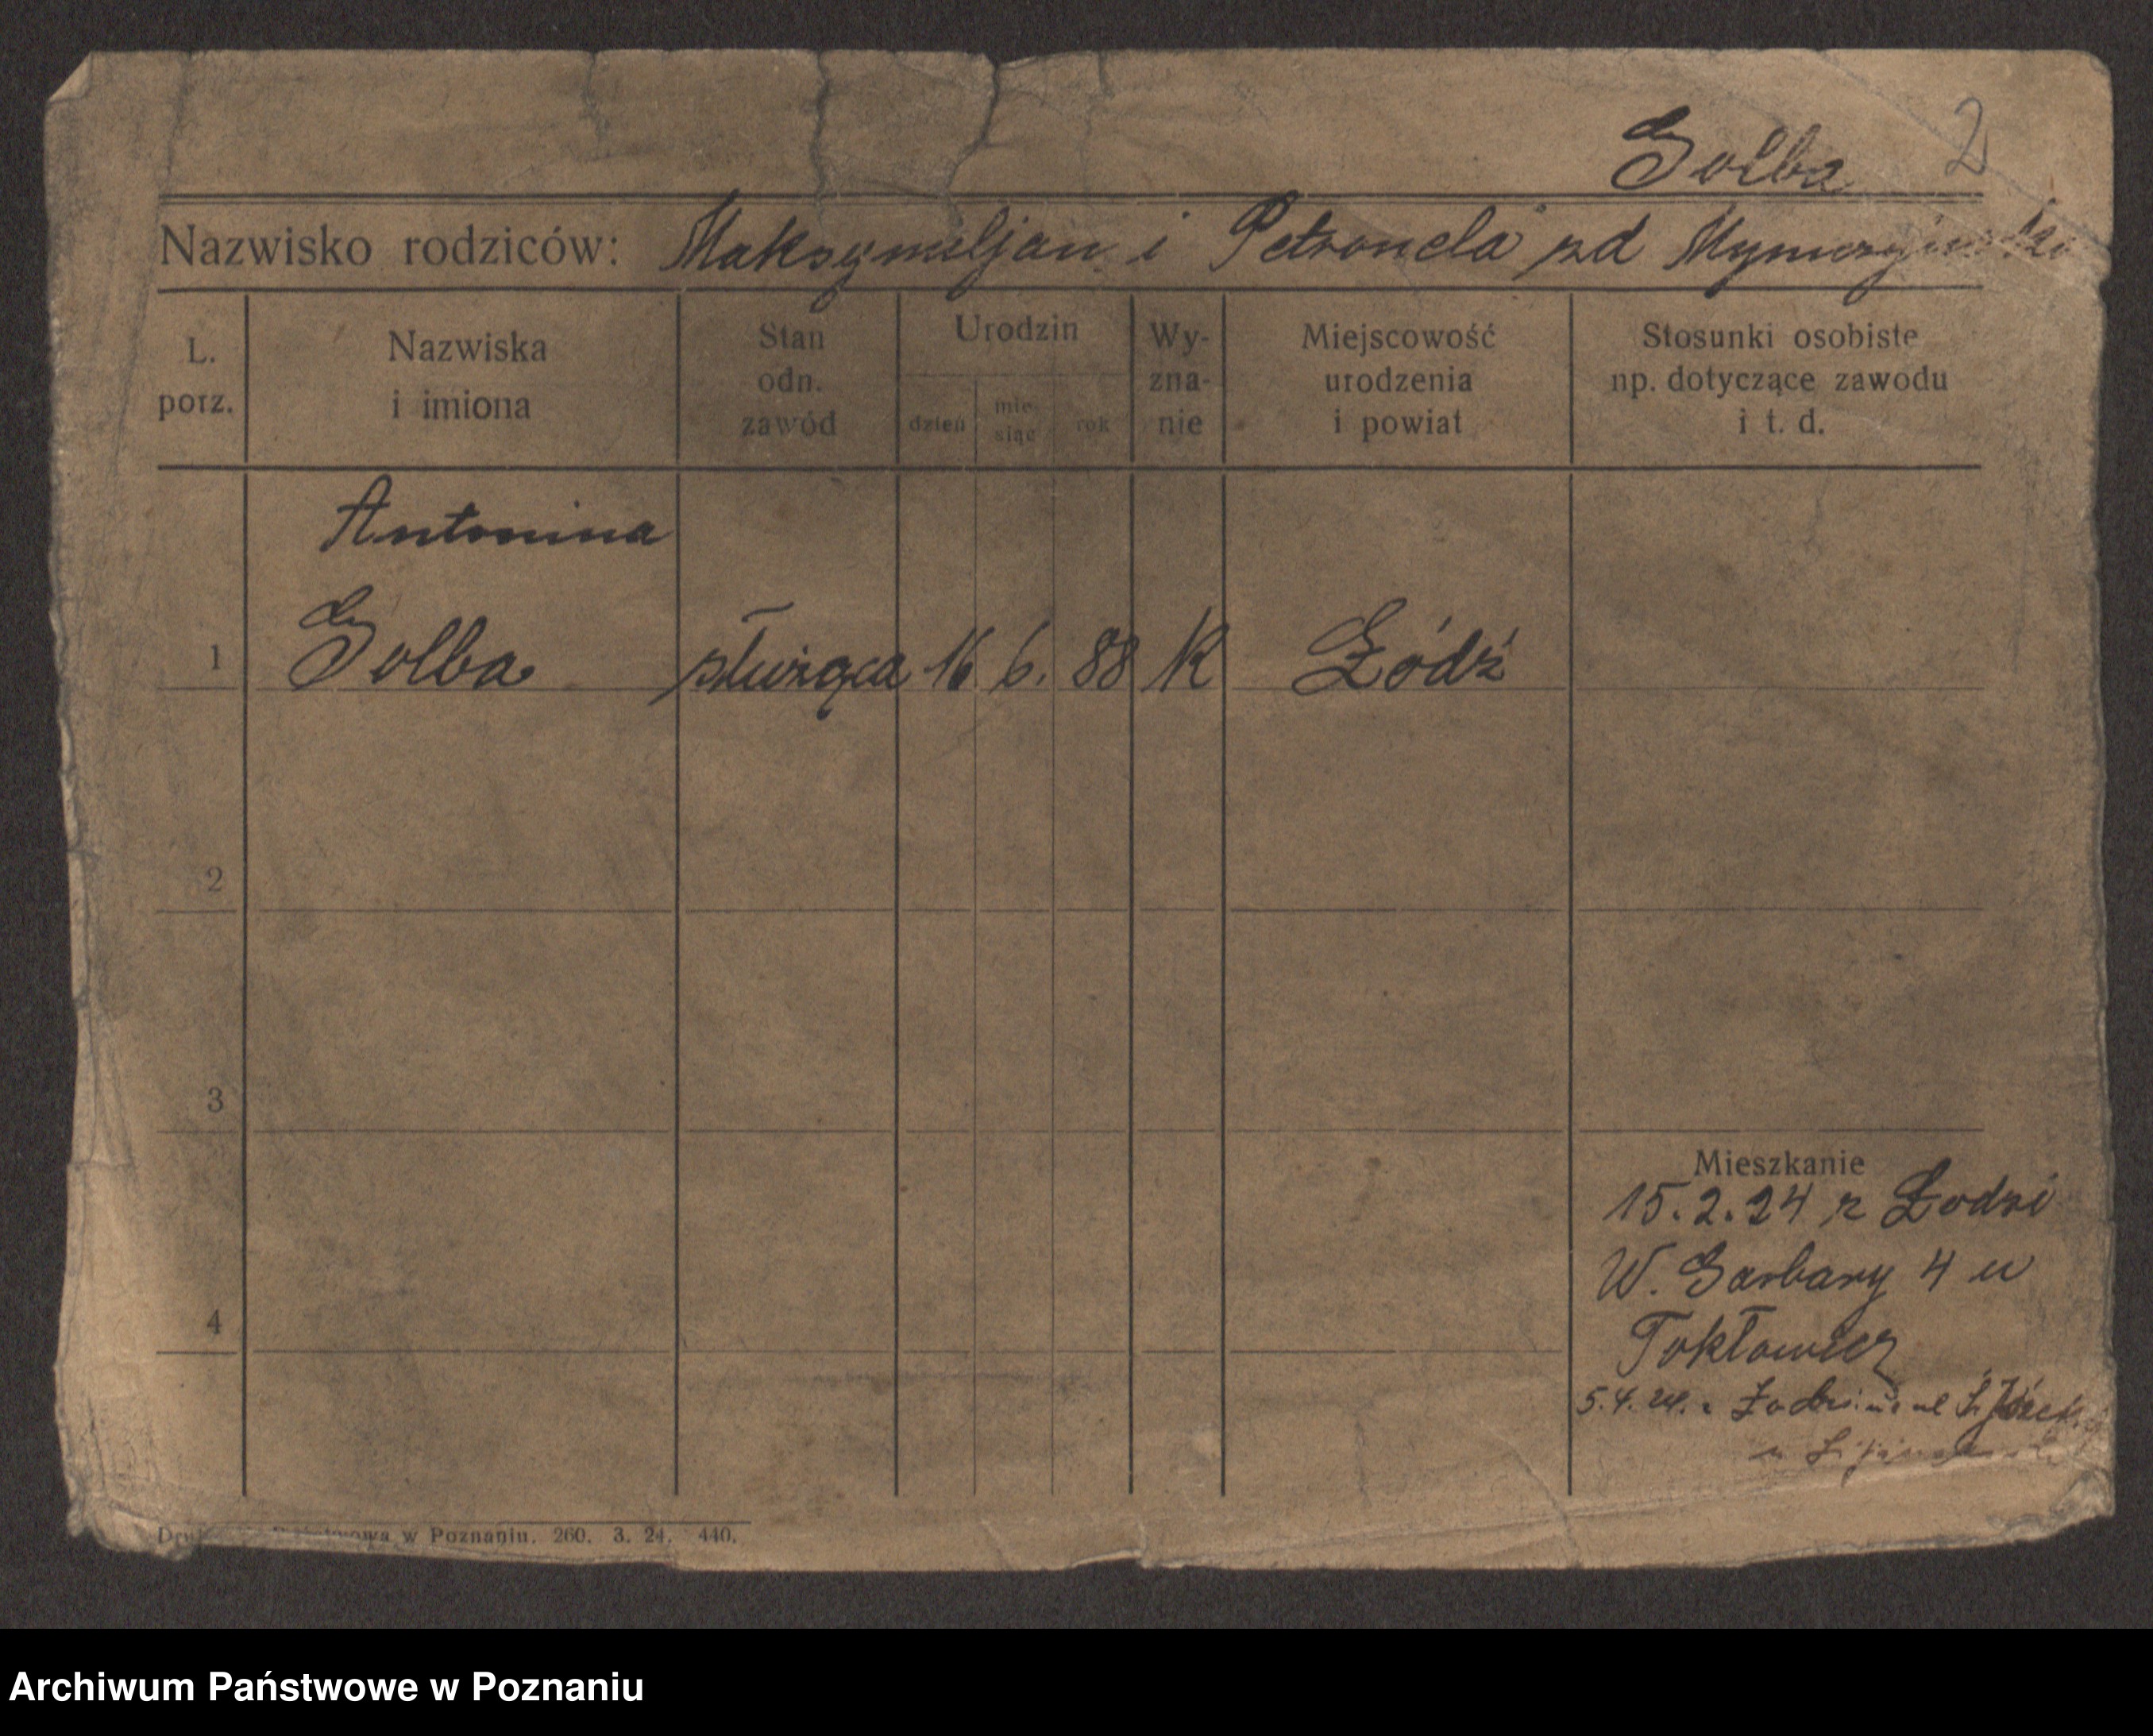 Golba 2
Nazwisko rodziców: Maksymiljan i Petronela zd
L. porz.
Nazwiska i imiona
Stan odn. zawód
Urodzin
dzień
mie-
siąc
rok
Wy-
zna-
nie
Miejscowość urodzenia i powiat
Stosunki osobiste np. dotyczące zawodu i t. d.
Antonina
1 Golba służąca 16 6. 88 K Łódź
2
3
4
Mieszkanie
15.2.24 z Łodzi
W. Garbary 4 u
5.4.24. z
u
w Poznaniu. 260. 3. 24. 440.
Archiwum Państwowe w Poznaniu